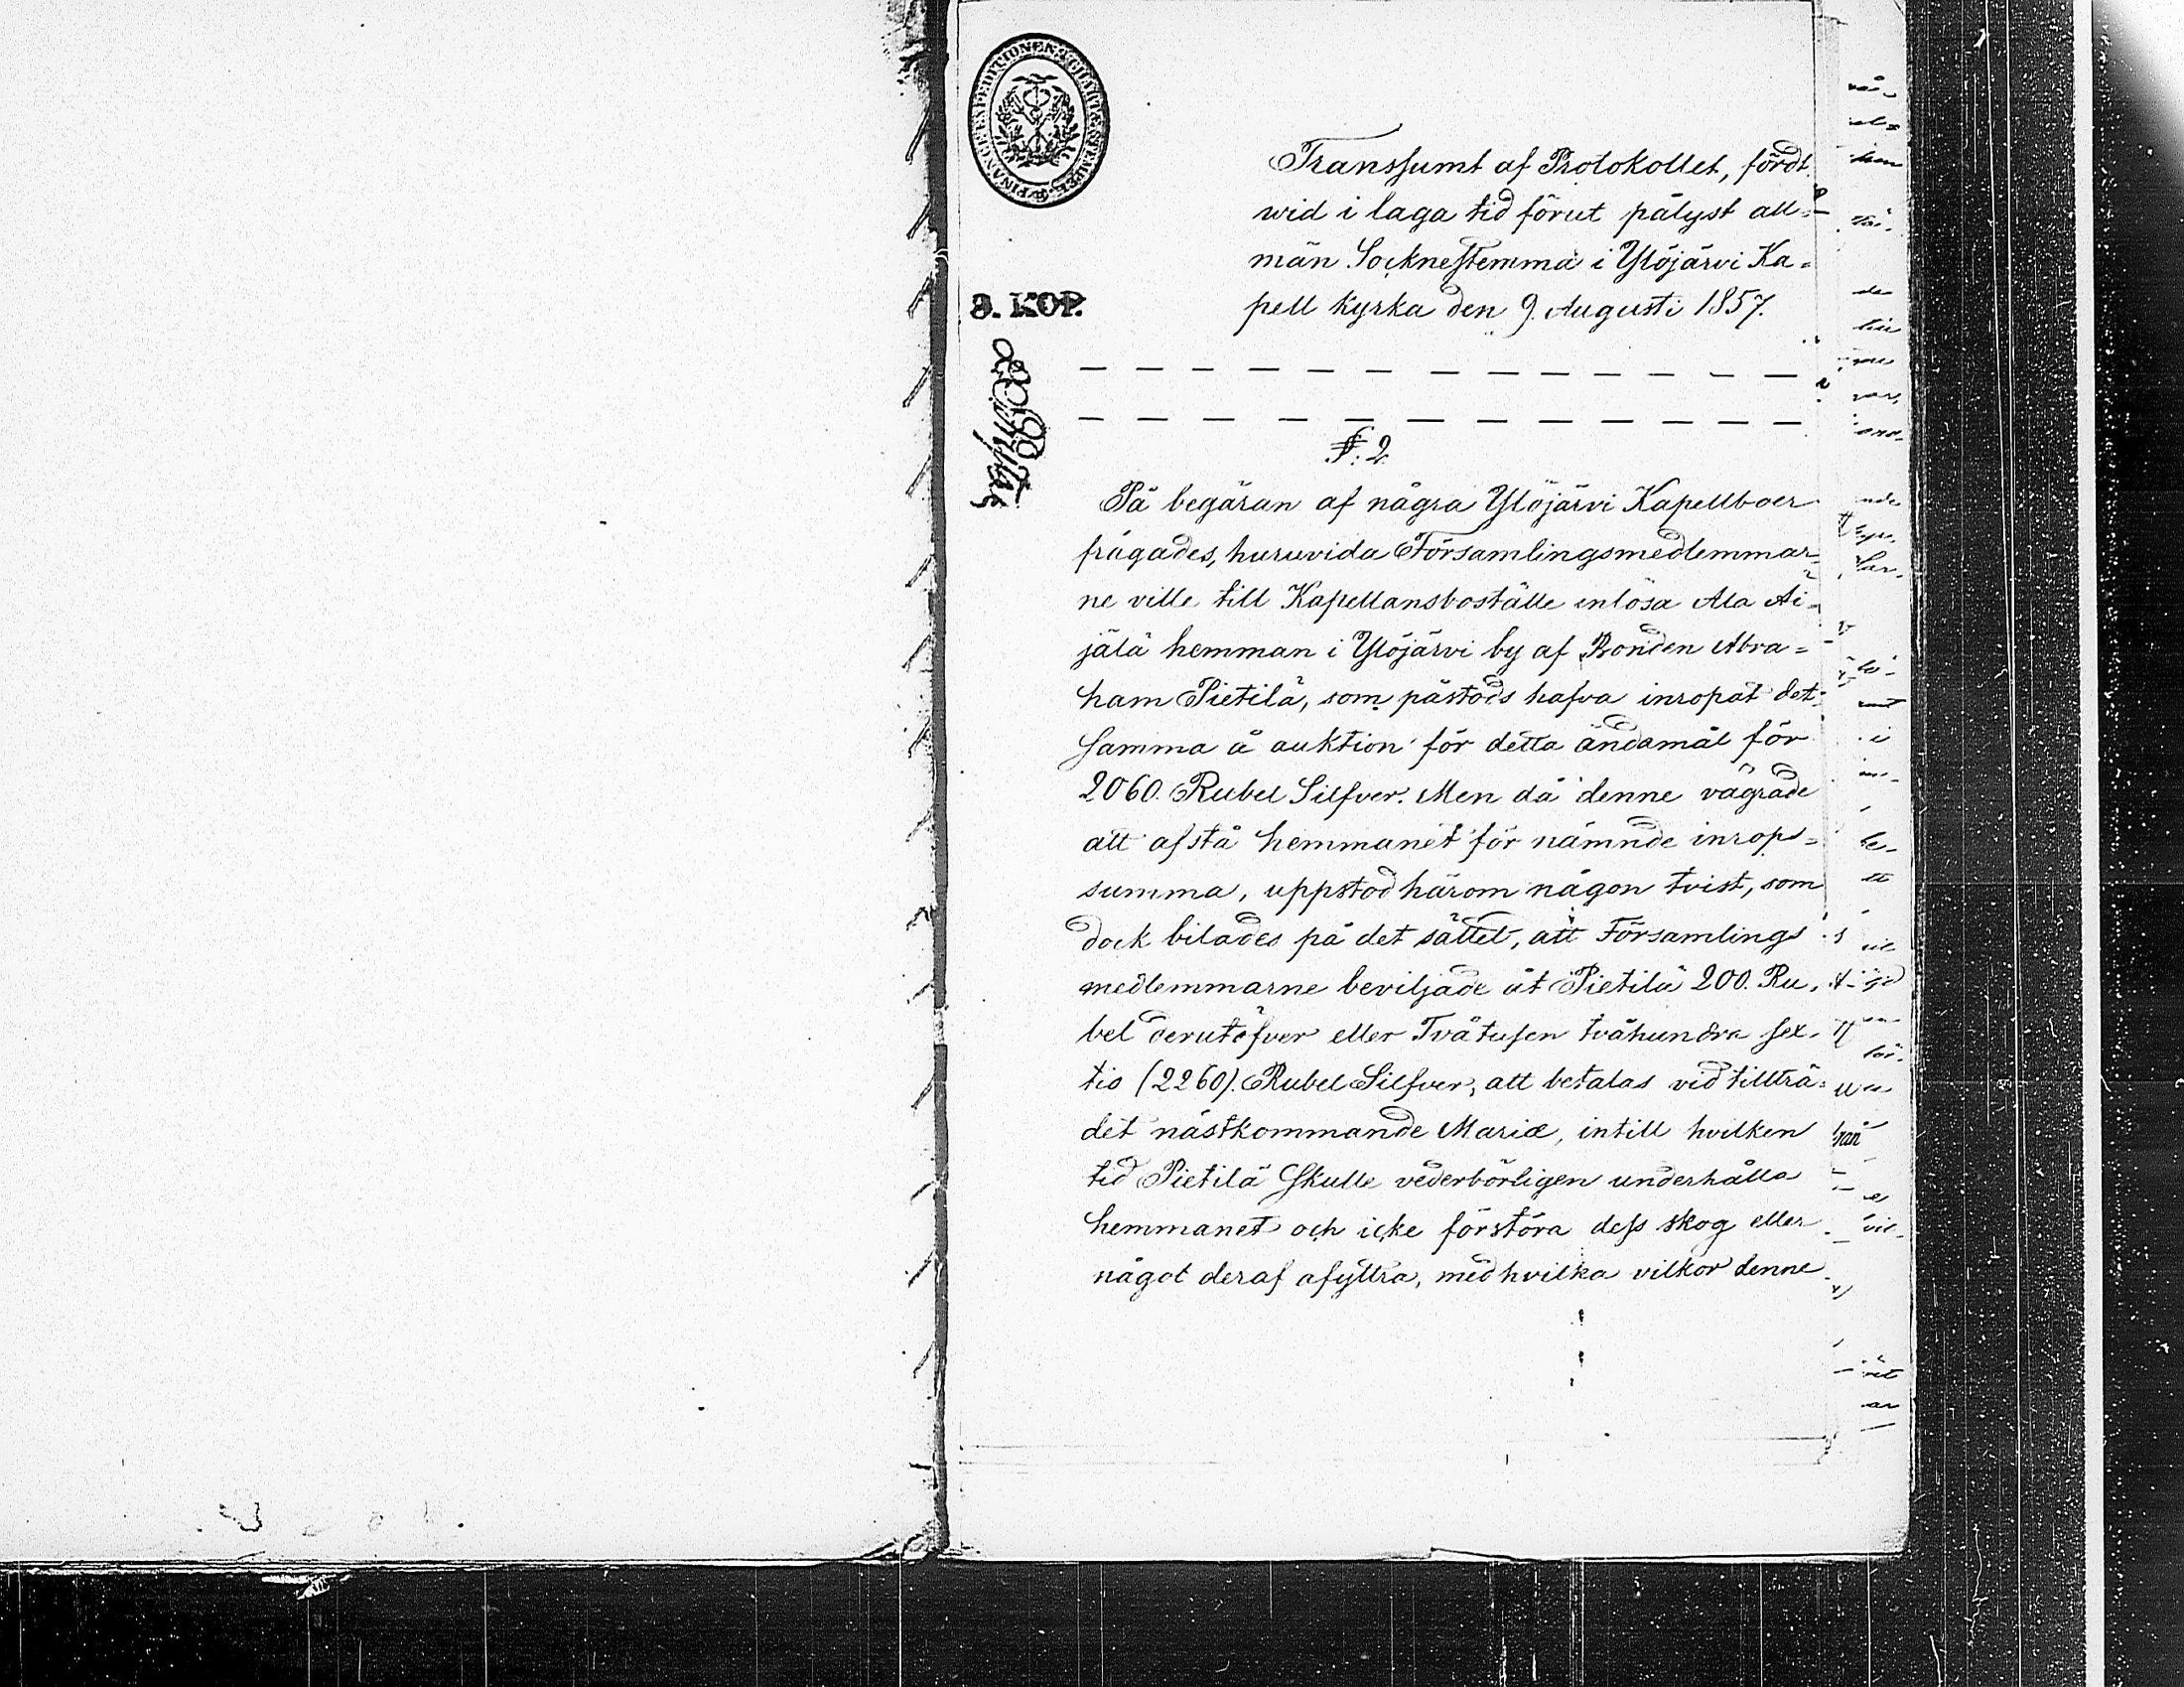 FINANCE EXPEDITIONEN & CHARTÆ STEMPEL
Transsumt af Protokollet, fördt
wid i laga tid förut pålyst all=
män Sockneſtemma i Ylöjärvi Ka=
3. KOP.
pell kyrka den 9. Augusti 1857.
§: 2.
På begäran af några Ylöjärvi Kapellboer
frågades, huruvida Församlingsmedlemmar=
ne ville till Kapellansboställe inlösa Ala Äi=
jälä hemman i Ylöjärvi by af Bonden Abra=
ham Pietilä, som påstods hafva inropat det=
samma å auktion för detta ändamål för
2060. Rubel Silfver. Men då denne vägrade
att afstå hemmanet för nämnde inrops=
summa, uppstod härom någon tvist, som
dock bilades på det sättet, att Församlings
medlemmarne beviljade åt Pietilä 200. Ru,
bel derutöfver eller Tvåtusen tvåhundra sex=
tio (2260). Rubel Silfver, att betalas vid tillträ=
det nästkommande Mariæ, intill hvilken
tid Pietilä skulle vederbörligen underhålla
hemmanet och icke förstöra dess skog eller
något deraf afyttra, med hvilka vilkor denne